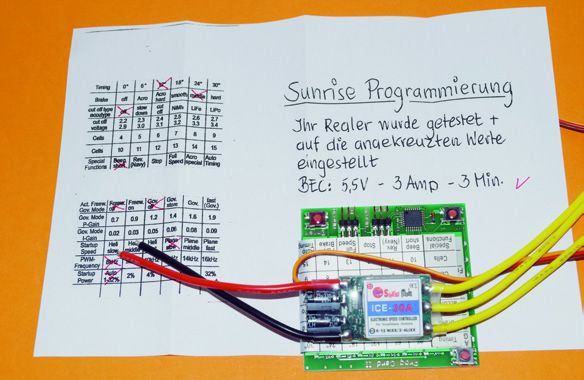 Sunrise Programmierung
Ihr Regler wurde getestet +
auf die angekreuzten Werte
eingestellt
BEC: 5,5V - 3 Amp - 3 Min. ✓
Timing 0° 6° 18° 24° 30°
Brake off Acro Acro hard smooth middle hard
cut off type off slow down cut off NiMh LiFe LiPo
cut off voltage 2.2 2.3 2.4 2.5 2.6 2.7
2.9 3.0 3.1 3.2 3.3 3.4
Cells 4 5 6 7 8 9
Cells 10 11 12 13 14 15
Special Functions Beep short Rev. (Navy) Stop Full Speed Acro special Auto Timing
Act. Freew. Gov. Mode Freew. off Freew. on Gov. off (Gov.)
Gov. Mode P-Gain 0.7 0.9 1.2 1.4 1.6 1.9
Gov. Mode I-Gain 0.02 0.03 0.05 0.06 0.08 0.09
Startup Speed Heli Heli middle Plane middle Plane fast
PWM-Frequency 8kHz 14kHz 16kHz
Startup Power Auto 1-32% 2% 4% 32%
ICE-30A
ELECTRONIC SPEED CONTROLLER
Prog-Card II